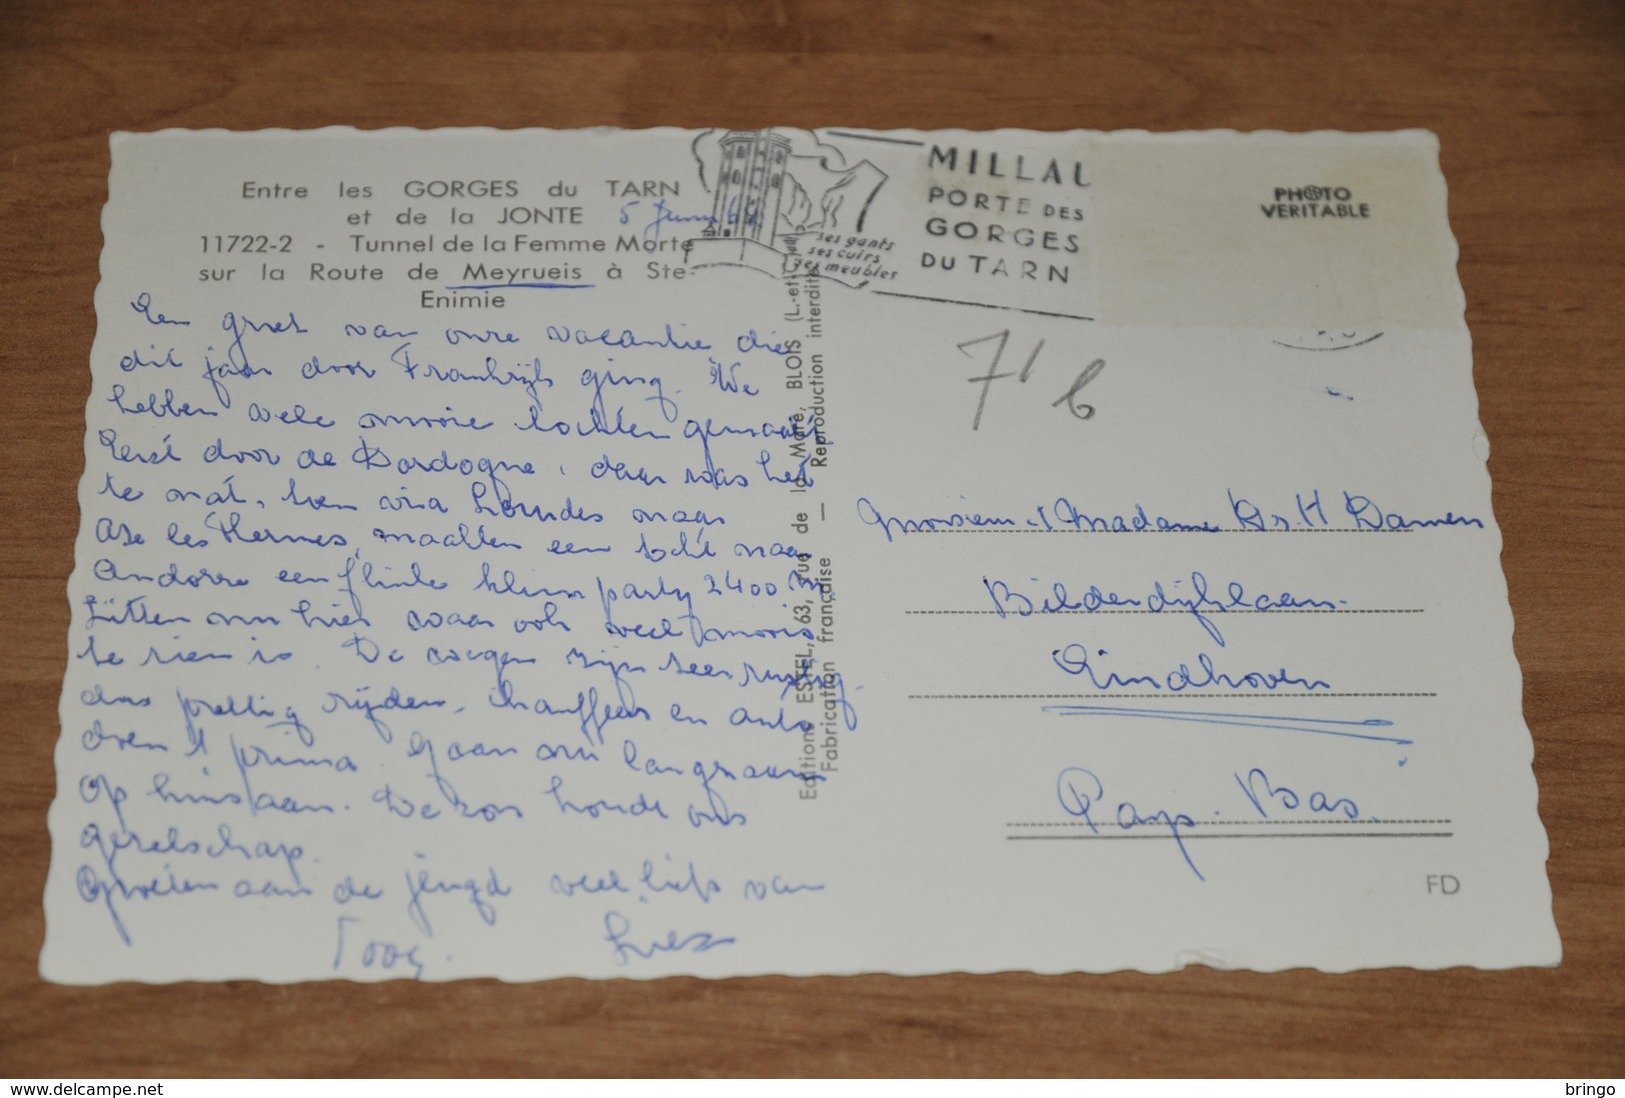 Entre les GORGES du TARN
et de la JONTE 5 Juni
11722-2 - Tunnel de la Femme Morte
sur la Route de Meyrueis à Ste-
Enimie
Een groet van onze vacantie die
dit jaar door Frankrijk ging. We
hebben vele mooie tochten gemaakt
Eerst door de Dordogne, daar was het
te nat, toen via Lourdes naar
Axe les Thermes, maakten een tocht naar
Andorre een flinke klim party 2400 m
Zitten nu hier waar ook veel moois
te zien is. De wegen zijn zeer rustig
dus prettig rijden. Chauffeur en auto
doen 't prima. Gaan nu langzaam
op huis aan. De zon houdt ons
gezelschap.
Groeten aan de jeugd veel liefs van
Toos. Lies
Editions ESTEL, 63, rue de la Mare, BLOIS (L.-et-
Fabrication française — Reproduction interdite
ses gants
ses cuirs
ses meubles
MILLAU
PORTE DES
GORGES
DU TARN
PHOTO
VERITABLE
7' b
Monsieur et Madame Dr. H Damen
Bilderdijklaan.
Eindhoven
Pays-Bas.
FD
www.delcampe.net
bringo